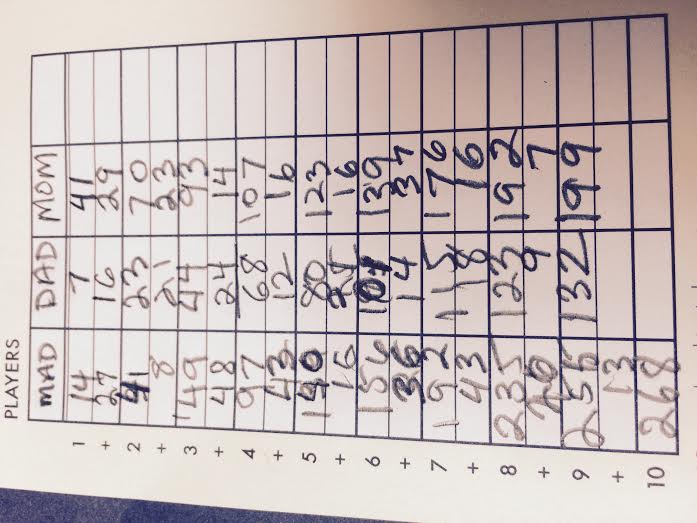 PLAYERS
MAD DAD MOM
1 14 7 41
+ 27 16 29
2 41 23 70
+ 8 21 23
3 49 44 93
+ 48 24 14
4 97 68 107
+ 43 12 16
5 140 80 123
+ 16 16
6 156 101 139
+ 36 14 37
7 192 115 176
+ 43 8 16
8 235 123 192
+ 20 9 7
9 255 132 199
+ 13
10 268